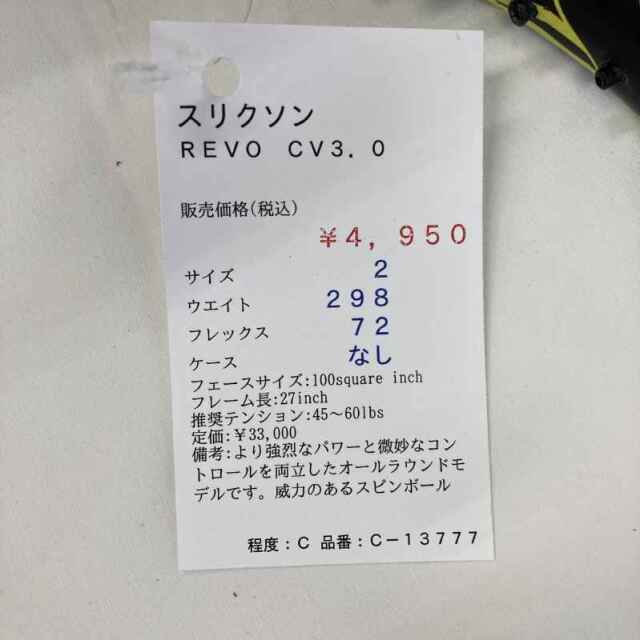 スリクソン
ＲＥＶＯ　ＣＶ３．０
販売価格(税込)
￥４，９５０
サイズ　２
ウエイト　２９８
フレックス　７２
ケース　なし
フェースサイズ:100square inch
フレーム長:27inch
推奨テンション:45～60lbs
定価:￥33,000
備考:より強烈なパワーと微妙なコン
トロールを両立したオールラウンドモ
デルです。威力のあるスピンボール
程度：Ｃ 品番：Ｃ－１３７７７